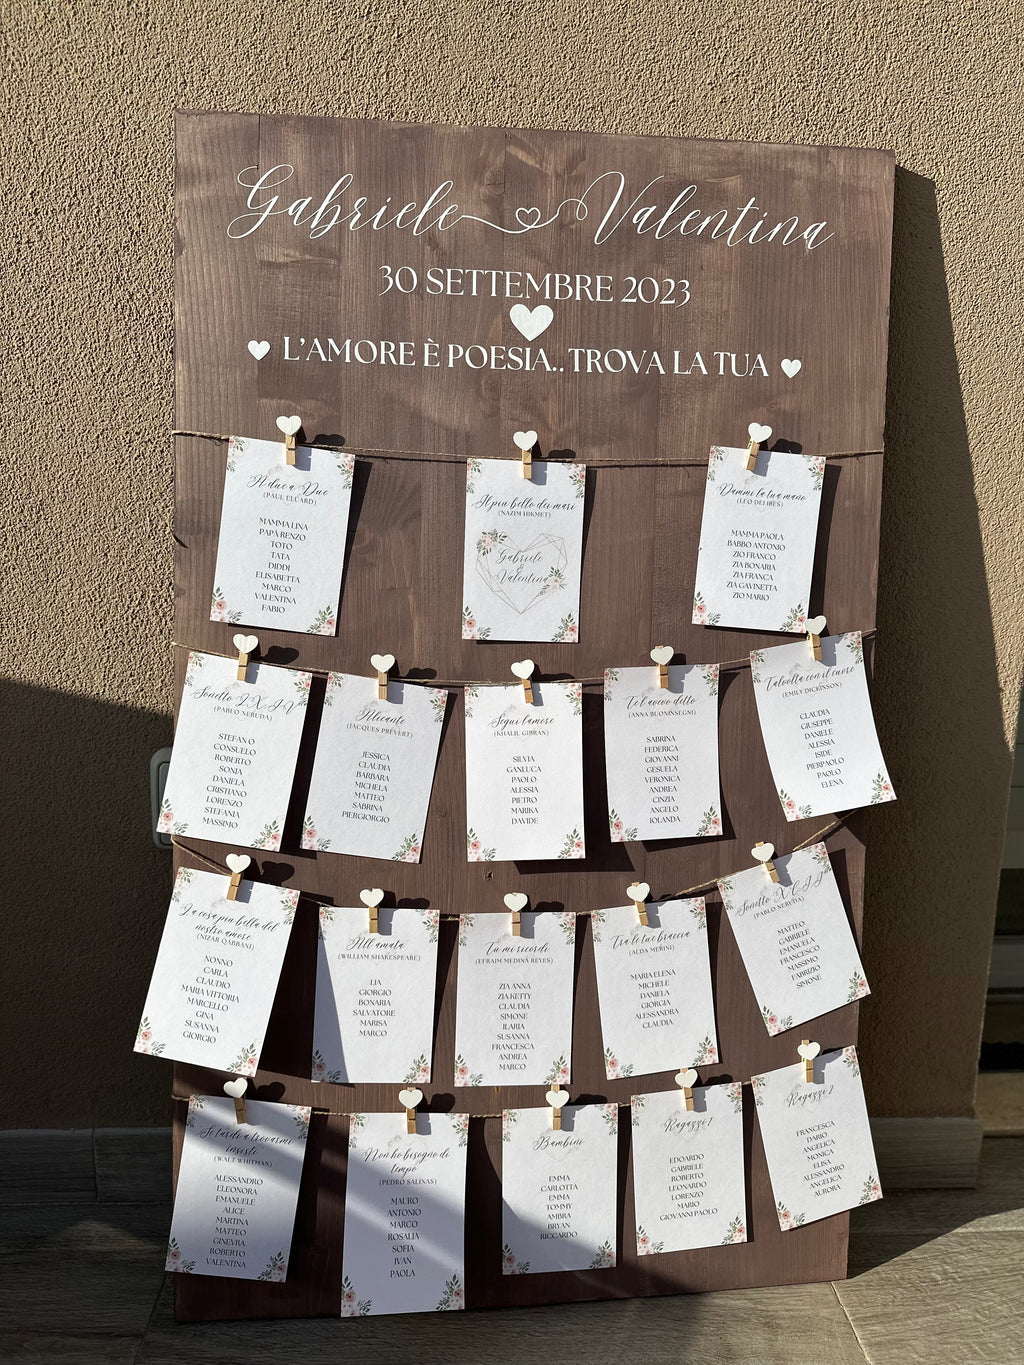 Gabriele Valentina
30 SETTEMBRE 2023
L'AMORE È POESIA.. TROVA LA TUA
Il due a Due
(PAUL ELUARD)
MAMMA LINA
PAPÀ RENZO
TOTO
TATA
DIDDI
ELISABETTA
MARCO
VALENTINA
FABIO
Il più bello dei mari
(NAZIM HIKMET)
Gabriele
&
Valentina
Dammi la tua mano
(LEO DELIBES)
MAMMA PAOLA
BABBO ANTONIO
ZIO FRANCO
ZIA BONARIA
ZIA FRANCA
ZIA GAVINETTA
ZIO MARIO
Sonetto LXXIV
(PABLO NERUDA)
STEFANO
CONSUELO
ROBERTO
SONIA
DANIELA
CRISTIANO
LORENZO
STEFANIA
MASSIMO
Alicante
(JACQUES PRÉVERT)
JESSICA
CLAUDIA
BARBARA
MICHELA
MATTEO
SABRINA
PIERGIORGIO
Segui l'amore
(KHALIL GIBRAN)
SILVIA
GANLUCA
PAOLO
ALESSIA
PIETRO
MARIKA
DAVIDE
Te l'avevo detto
(ANNA BUONINSEGNI)
SABRINA
FEDERICA
GIOVANNI
GESUELA
VERONICA
ANDREA
CINZIA
ANGELO
IOLANDA
con il cuore
(EMILY DICKINSON)
CLAUDIA
GIUSEPPE
DANIELE
ALESSIA
ISIDE
PIERPAOLO
PAOLO
ELENA
La cosa più bella del
nostro amore
(NIZAR QABBANI)
NONNO
CARLA
CLAUDIO
MARIA VITTORIA
MARCELLO
GINA
SUSANNA
GIORGIO
All'amata
(WILLIAM SHAKESPEARE)
LIA
GIORGIO
BONARIA
SALVATORE
MARISA
MARCO
Tu mi ricordi
(EFRAIM MEDINA REYES)
ZIA ANNA
ZIA KETTY
CLAUDIA
SIMONE
ILARIA
SUSANNA
FRANCESCA
ANDREA
MARCO
Tra le tue braccia
(ALDA MERINI)
MARIA ELENA
MICHELE
DANIELA
GIORGIA
ALESSANDRA
CLAUDIA
Sonetto XCII
(PABLO NERUDA)
MATTEO
GABRIELE
EMANUELA
FRANCESCO
MASSIMO
FABRIZIO
SIMONE
Se tardi a trovarmi
insisti
(WALT WHITMAN)
ALESSANDRO
ELEONORA
EMANUELE
ALICE
MARTINA
MATTEO
GINEVRA
ROBERTO
VALENTINA
Non ho bisogno di
tempo
(PEDRO SALINAS)
MAURO
ANTONIO
MARCO
ROSALIA
SOFIA
IVAN
PAOLA
Bambini
EMMA
CARLOTTA
EMMA
TOMMY
AMBRA
BRYAN
RICCARDO
Ragazzi 1
EDOARDO
GABRIELE
ROBERTO
LEONARDO
LORENZO
MARIO
GIOVANNI PAOLO
Ragazzi 2
FRANCESCA
DARIO
ANGELICA
MONICA
ELISA
ALESSANDRO
ANGELICA
AURORA